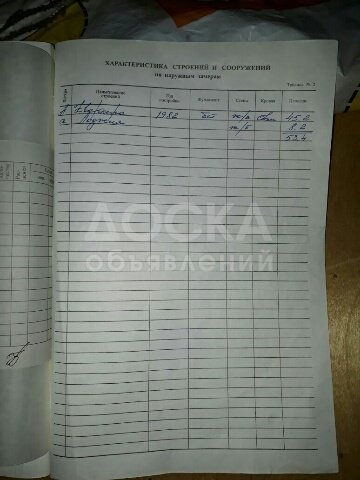 ХАРАКТЕРИСТИКА СТРОЕНИЙ И СООРУЖЕНИЙ
по наружным замерам
Таблица № 2
Литера Наименование строения Год постройки Фундамент Стены Кровля Площадь
Квартира 1982 бет ж/б 45.2
а Лоджия ж/б 8.2
53.4
ДОСКА
объявлений